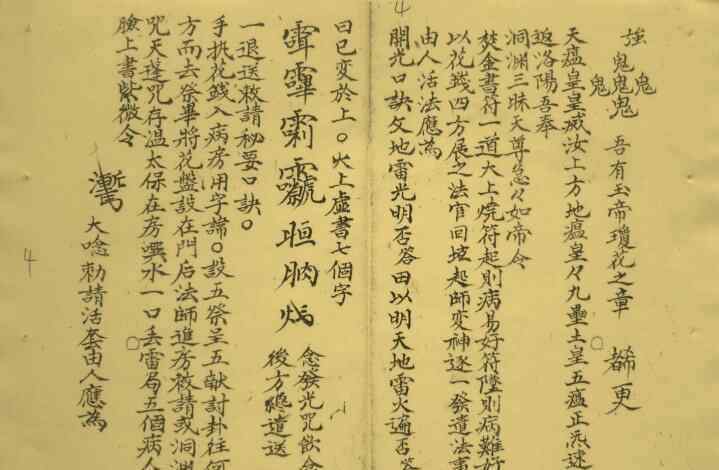 強 鬼鬼鬼鬼鬼 吾有玉帝瓊花之章 都 更
天瘟皇皇威汝上方地瘟皇々九壘土皇五瘟正炁速
返洛陽吾奉
洞渊三昧天尊急々如帝令
焚金書符一道大上燒符起則病易好符墜則病難好
以花錢四方展之法官回壇起師变神逐一發遣法事
由人活法應為
開光口訣 地雷光明否答曰以明天地雷火遍否答
曰已变於上。火上虛書七個字
念發光咒飲食
後方總遣送
一退送敕請秘要口訣。
手执花錢入病房用字諱。設五祭呈五献討卦往何
方而去祭畢將花盤設在門后法師進房敕請或洞渊
咒天蓬咒存温太保在房噀水一口丢雷局五個病人
臉上書紫微令
大唸勅請活套由人應為
4
4